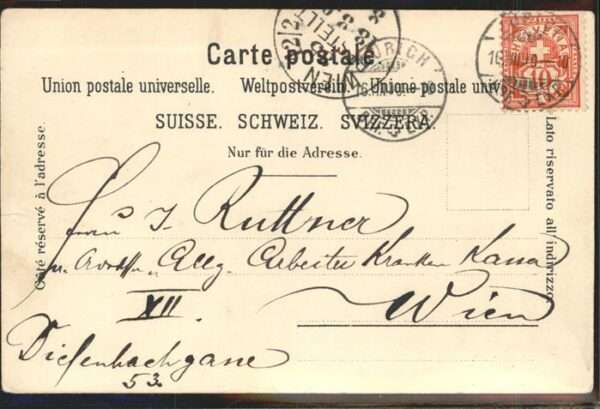 Carte postale.
Union postale universelle. Weltpostverein. Unione postale universale
SUISSE. SCHWEIZ. SVIZZERA.
Nur für die Adresse.
Côté réservé à l'adresse.
Lato riservato all'indirizzo
HELVETIA
10
WIEN 2/2
BESTELLT
ZÜRICH
J. Ruttner
Allg. Arbeiter Kranken Kassa
XII
Wien
Diefenbachgasse
53.